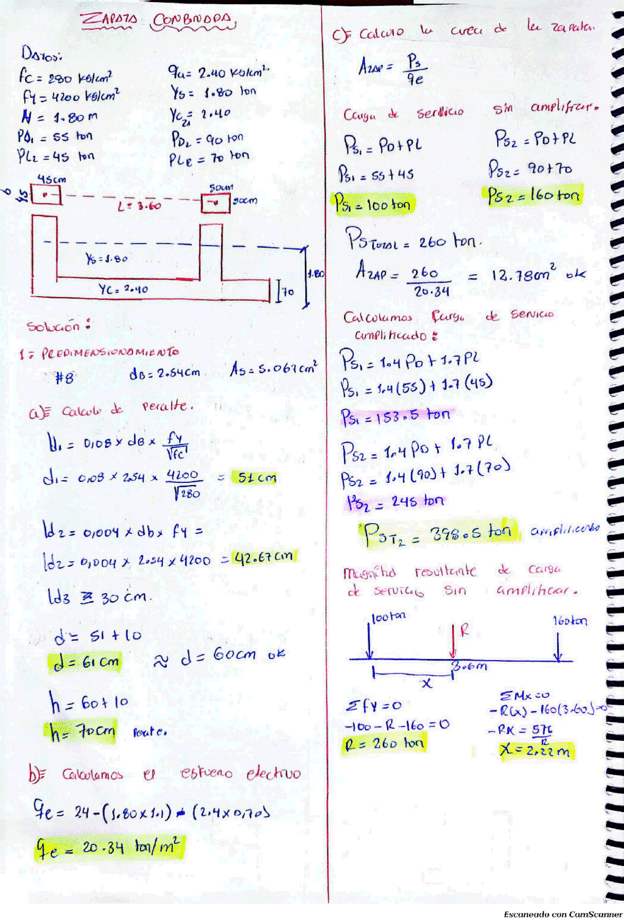 ZAPATA COMBINADA,
Datos:
f'c = 280 kg/cm²
fy = 4200 kg/cm²
N = 1.80 m
PD₁ = 55 ton
PL₂ = 45 ton
qu = 2.40 kg/cm².
γs = 1.80 ton
γc = 2.40
PD₂ = 90 ton
PLe = 70 ton
45cm
L = 3.60
50cm
50cm
γs = 1.80
γc = 2.40
1.80
70
Solución:
1= PREDIMENSIONAMIENTO
#8 dB = 2.54cm As = 5.067cm²
a)= Calculo de peralte.
ld₁ = 0,08 × dB × fy/√fc'
d₁ = 0,08 × 2.54 × 4200/√280 = 51 cm
ld₂ = 0,004 × db × fy =
ld₂ = 0,004 × 2.54 × 4200 = 42.67cm
ld₃ ≅ 30 cm.
d = 51 + 10
d = 61 cm ≈ d = 60cm ok
h = 60 + 10
h = 70cm
b)= Calculamos el esfuerzo efectivo
qe = 24 - (1.80 × 1.1) - (2.4 × 0,70)
qe = 20.34 ton/m²
c)= Calculo la area de la zapata.
AZAP = Ps/qe
Carga de servicio sin amplificar.
Ps₁ = PD + PL
Ps₁ = 55 + 45
Ps₁ = 100 ton
Ps₂ = PD + PL
Ps₂ = 90 + 70
Ps₂ = 160 ton
PsTOTAL = 260 ton.
AZAP = 260/20.34 = 12.78cm² ok
Calculamos Carga de servicio
amplificado:
Ps₁ = 1.4 PD + 1.7 PL
Ps₁ = 1.4(55) + 1.7(45)
Ps₁ = 153.5 ton
Ps₂ = 1.4 PD + 1.7 PL
Ps₂ = 1.4(90) + 1.7(70)
Ps₂ = 245 ton
PsT₂ = 398.5 ton, amplificando
Magnitud resultante de carga
de servicio sin amplificar.
100ton
R
160ton
3.6m
X
Σfy = 0
-100 - R - 160 = 0
R = 260 ton
ΣMx = 0
-R(x) - 160(3.60) = 0
-RX = 576/R
X = 2.22 m
Escaneado con CamScanner